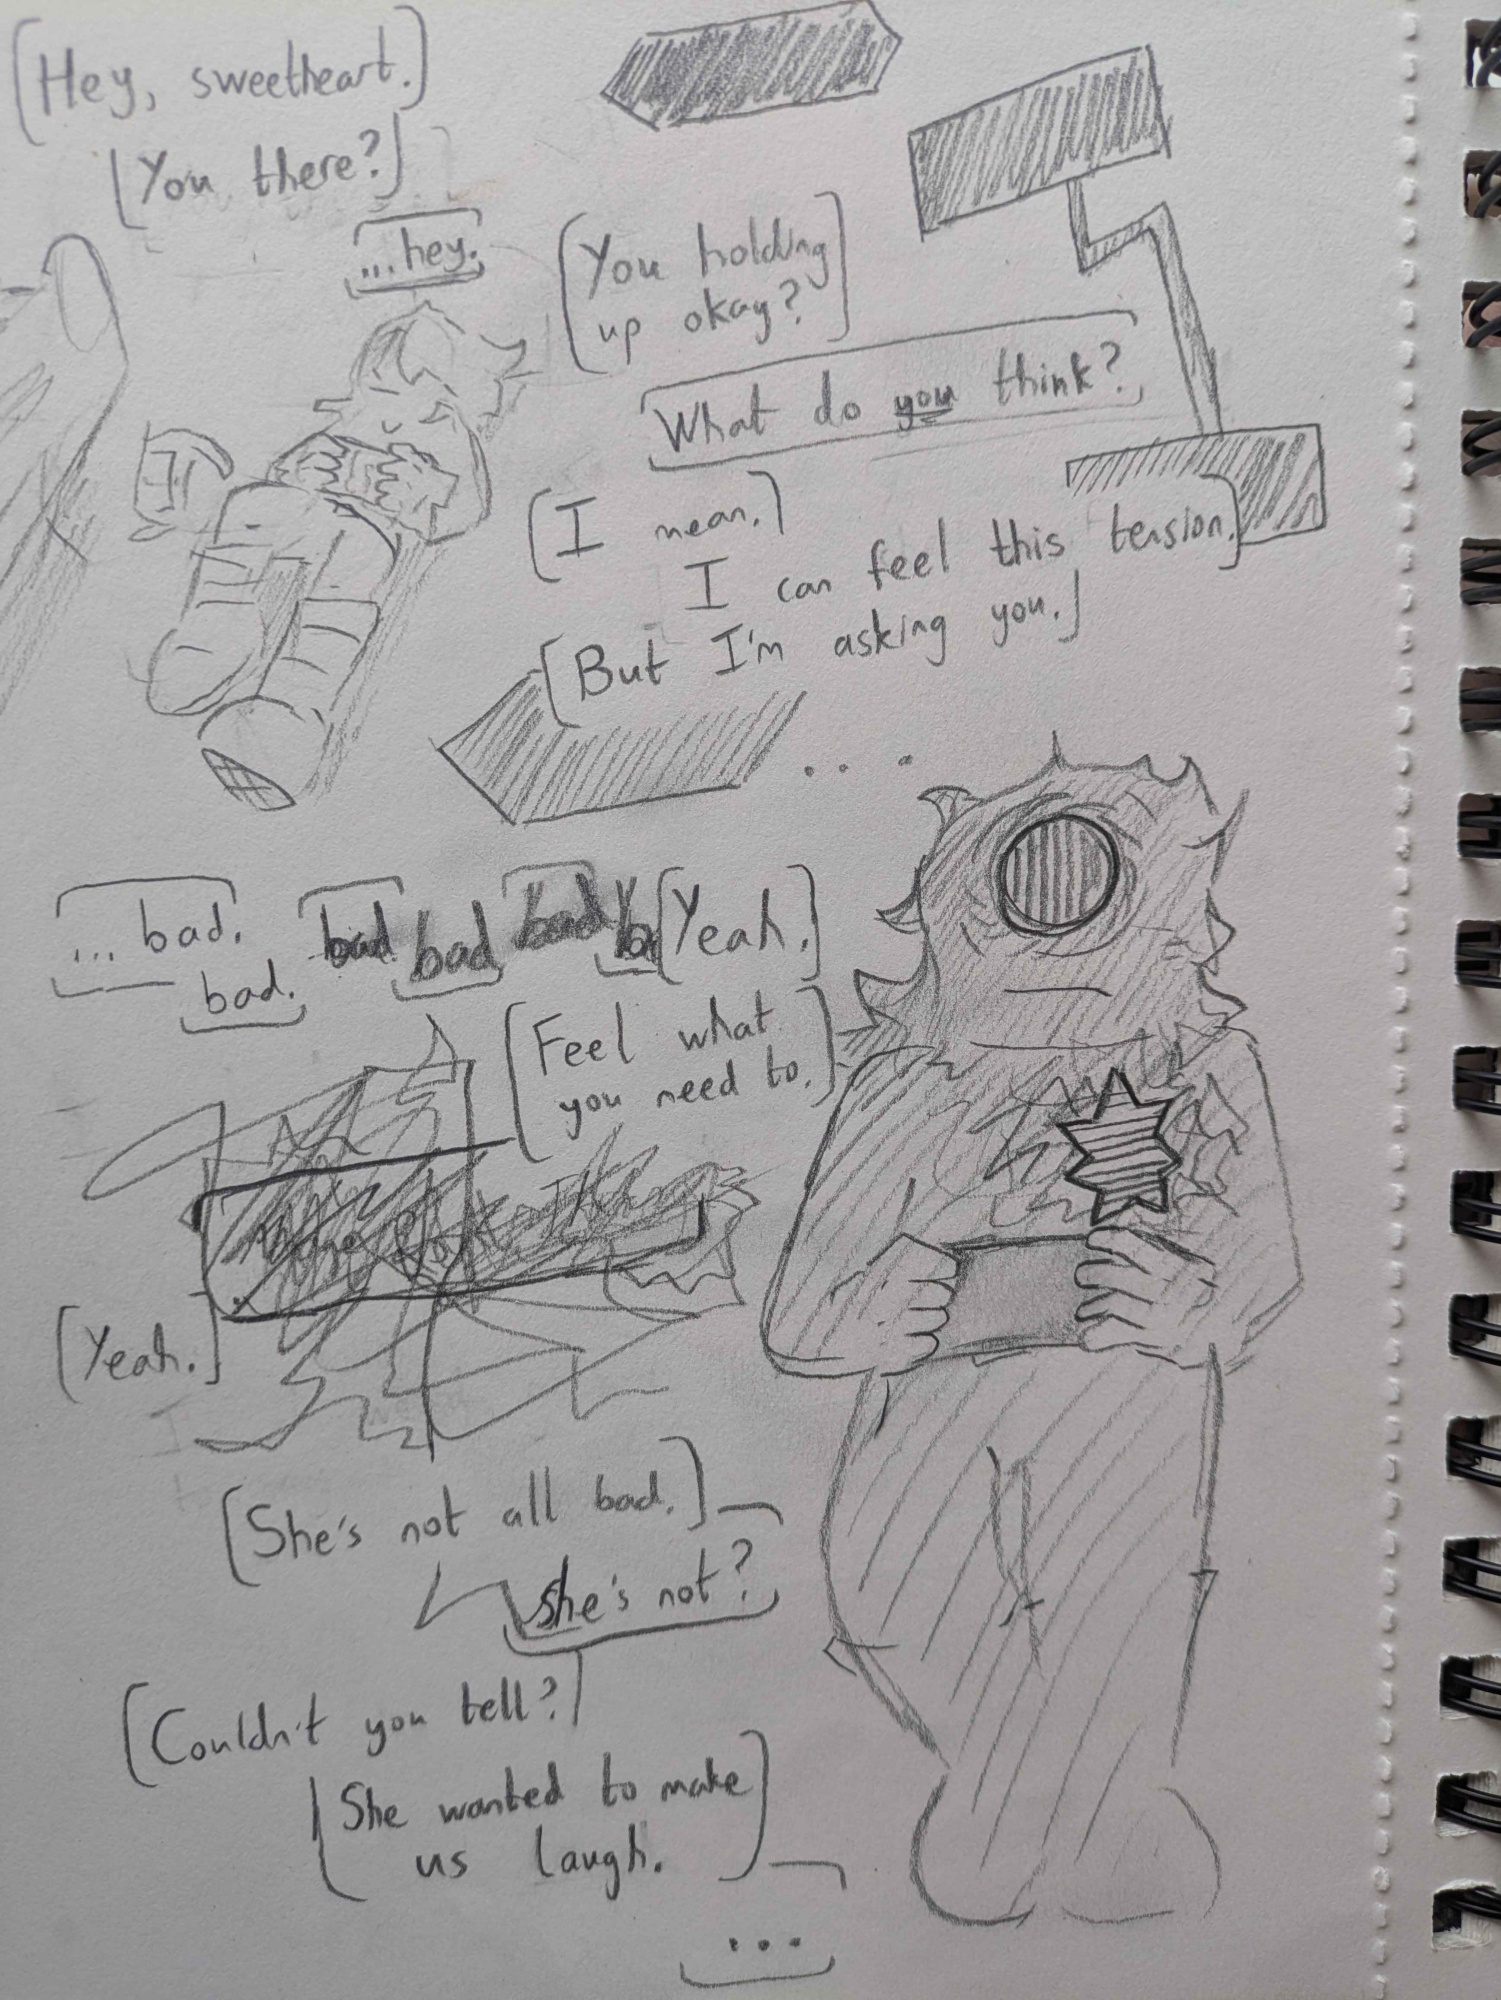 [Hey, sweetheart.]
[You there?]
...hey.
[You holding
up okay?]
What do you think?
[I mean.]
I can feel this tension.]
[But I'm asking you.]
...
...bad.
bad.
bad
bad
bad
[Yeah.]
[Feel what
you need to.]
[Yeah.]
[She's not all bad.]
She's not?
[Couldn't you tell?]
[She wanted to make
us laugh.]
...